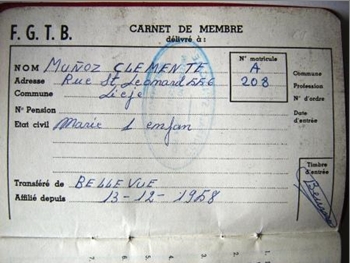 F. G. T. B.
CARNET DE MEMBRE
délivré à :
NOM MUÑOZ CLEMENTE
Adresse Rue St Leonard 556
Commune Lieje
N° Pension
Etat civil Marie 1 enfan
Transféré de BELLEVUE
Affilié depuis 13-12-1958
N° matricule
A
208
Commune
Profession
N° d'ordre
Date
d'entrée
Timbre
d'entrée